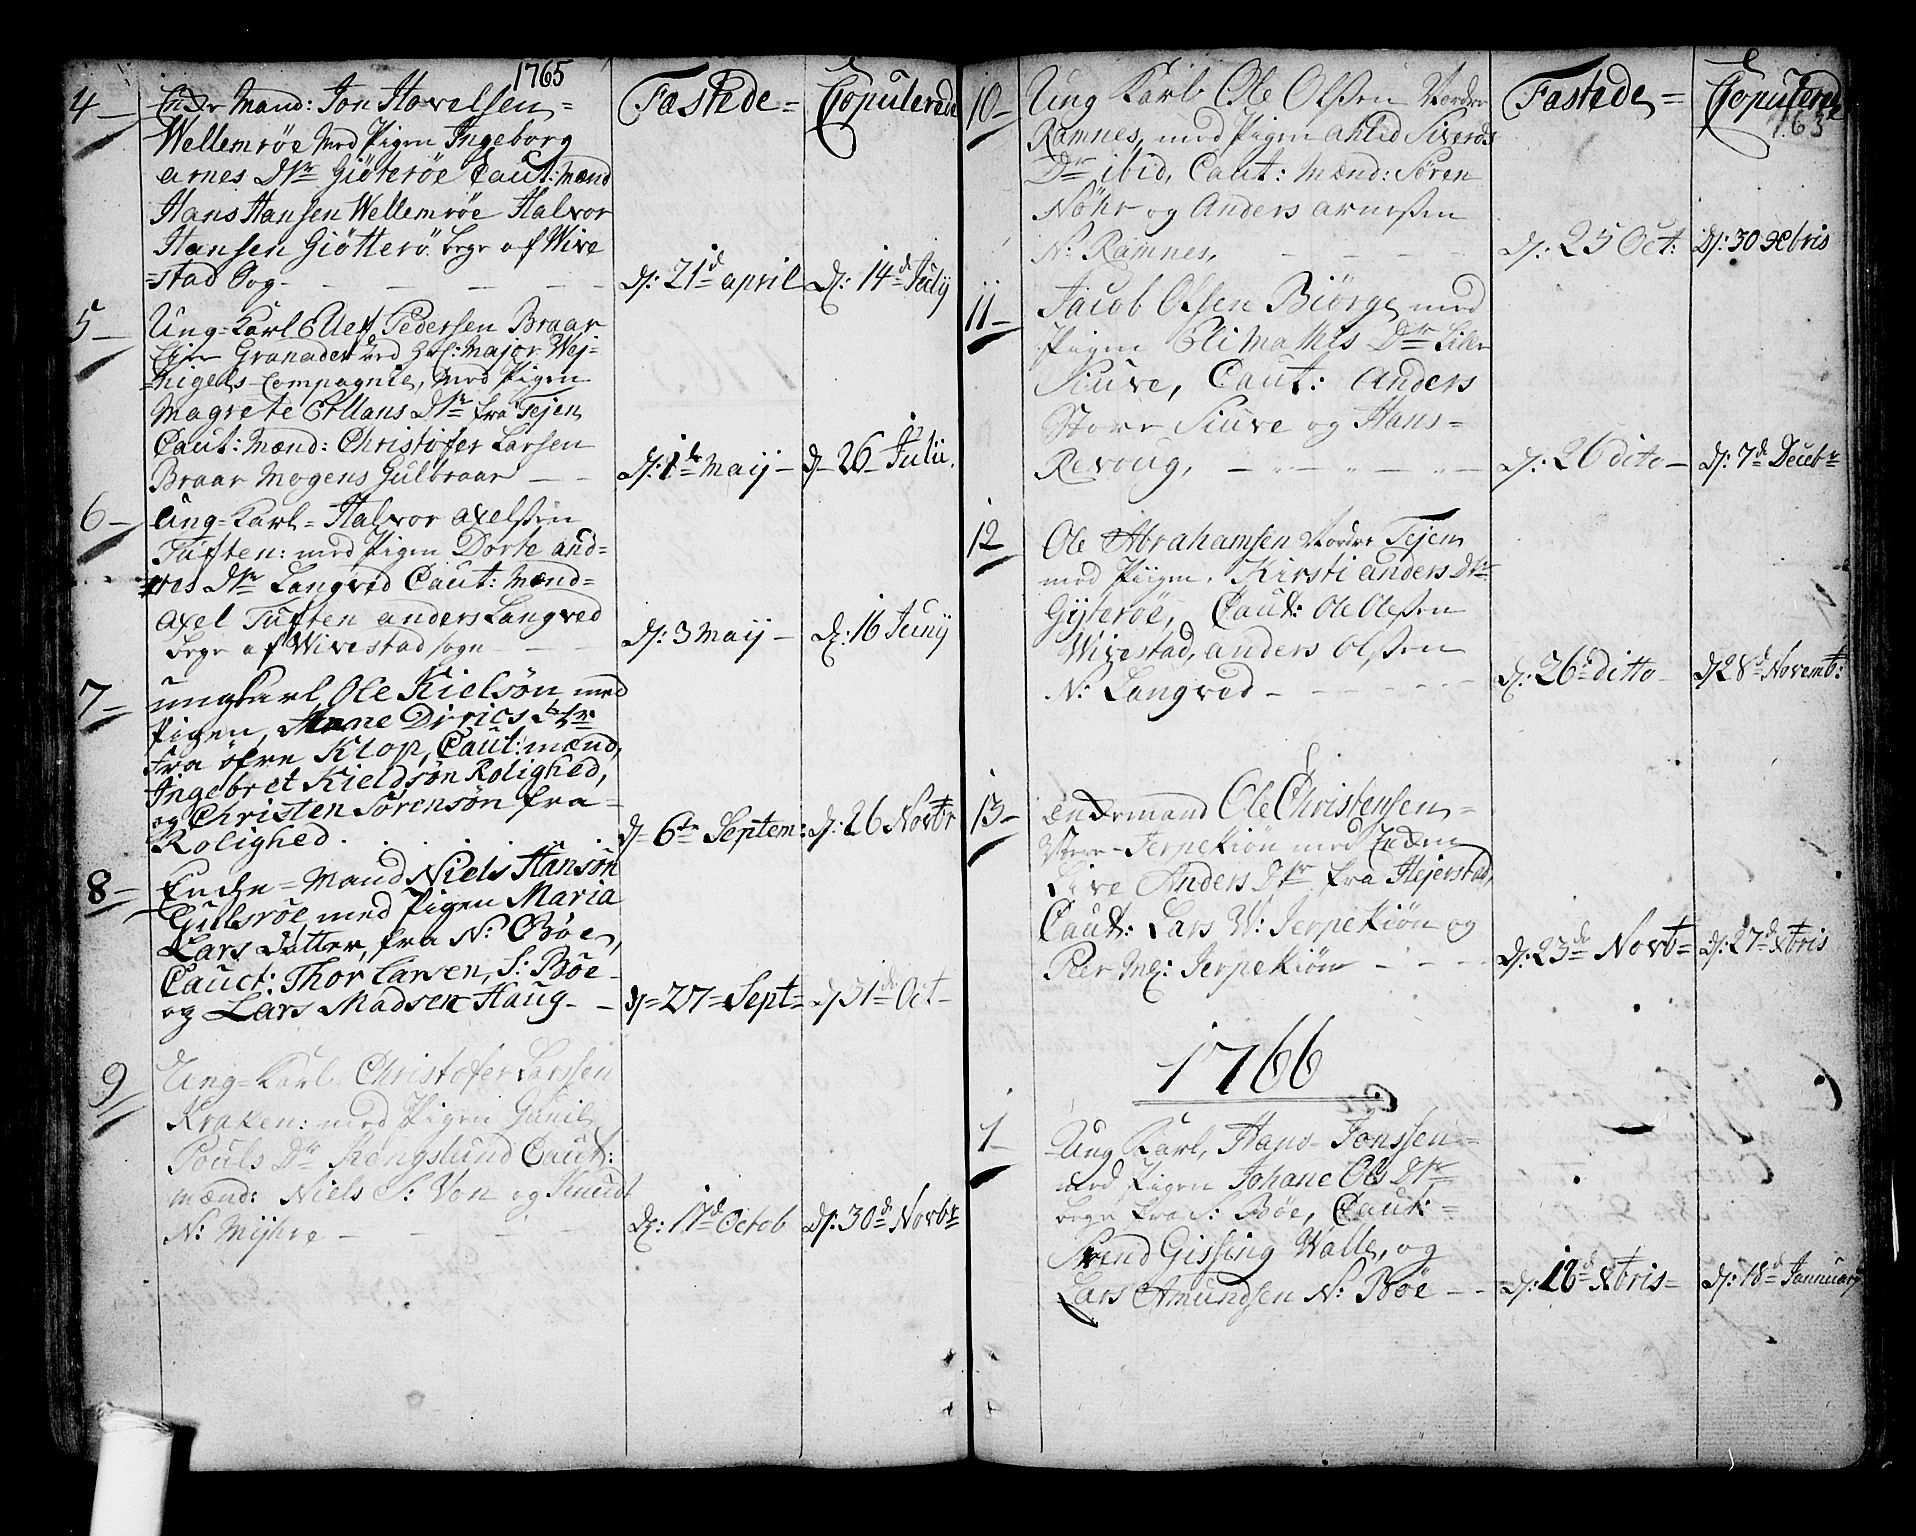 1765
Fastede =
Copulerede
4 - Enke Mand: Jon Hovelsen =
Wellemrøe med Pigen Ingeborg
arnes Dtr Giøterøe Caut: Mænd
Hans Hansen Wellemrøe Halvor
Hansen Giøtterö bege af Wive
=stad Sog - - - - -
d: 21d april
d: 14de Julij
5 - Ung=Karl Ellef Pedersen Braar
Granader ved Major Wej-
=nigels Compagnie, med Pigen
Magrete Ermans Dtr fra Tejen
Caut: Mænd: Christofer Larsen
Braar Mogens Gulbraar - -
d: 1de Maij -
d - 26 - Julii.
6 - Ung=Karl= Halvor axelssen
Tuften: med Pigen Dorte and=
res Dtr Langved Caut: Mænd=
axel Tuften anders Langved
bege af Wivestad sogn - - -
d: 3 Maij -
d: 16 Junij
7 - ungkarl, Ole Kielsøn med
Pigen, Anne Dirics Dtr:
fra øfre Klop, Caut: mænd,
Ingebret Kieldsøn Rolighed,
og Christen Sørensøn fra -
Rolighed.
d 6te Septem:
d: 26 Novbr
8 - Enche = Mand Niels Hansøn
Gulsrøe med Pigen Maria
Lars Datter, fra N: Bøe,
Cauct: Thor Larsen, S: Bøe -
og Lars Madsen Haug - -
d = 27 = Sept =
d 31de Oct -
9 Ung=Karl Christofer Larssen
Kraken: med Pigen Gunil
Pouls Dr Kongslund Caut:
mænd: Niels S: Von og Knudt
N: Mijhre - - - -
d: 17d Octob
d: 30de Novbr
Fastede =
Copulerede
163
10 - Ung Karl Ole Olssen Nordre
Ramnes, med Pigen ahlid Siverds
Dr ibid, Caut: Mænd: Søren
Nöhr og Anders arnessen
N: Ramnes, - - - -
d: 25 Oct:
d: 30 Xbris
11 - Jacob Olsen Biörge med
Pigen Eli Mathis Dr Lille
Siuve, Caut: Anders
Store Siuve og Hans=
Revoug, - - - -
d: 26 dito -
d: 7de Decebr
12 Ole Abrahamsen Nordre Tejen
med Piigen. Kirsti anders Dtr
Gijterøe, Caut: Ole Olessen
Wivestad, anders Olssen
N: Langved - - - - -
d: 26de ditto -
d 28d Novemb:
13 - Enkemand Ole Christensen =
Jerpekiøn med Enken
Live Anders Dtr fra Hejerstad,
Caut: Lars W: Jerpekiøn og
Peer Jerpekiøn - - -
d: 23de Novb =
d: 27de Xbris
1766
1 - Ung Karl, Hans Jonssen =
med Pigen Johane Ols Dtr
bege fra S: Bøe, Caut: =
Svend Gissing Walle, og
Lars Amundsen N: Bøe - -
d: 18de Xbris -
d: 18de Jannuary